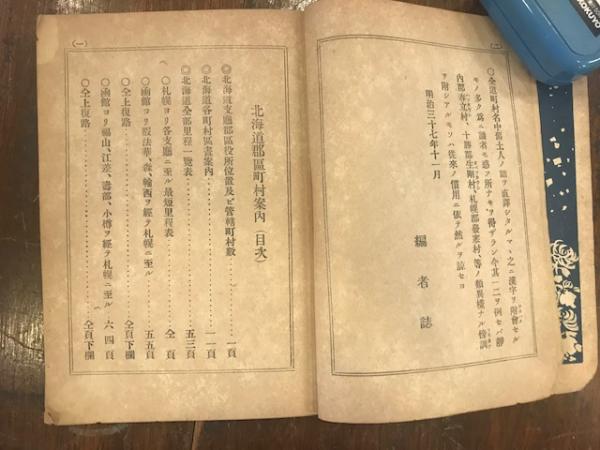 ○全道町村名中舊土人ノ語ヲ直譯シタルマヽ之ニ漢字ヲ附會セル
モノ多ク爲ニ讀者モ惑フ所ナキヲ得ザラン今其一二ヲ例セバ靜
内郡 村、十勝郡生剛村、札幌郡 村、等ノ類異樣ナル傍訓
ヲ附シアルモソハ從來ノ慣用ニ依テ然ルヲ諒セヨ
明治三十七年十一月
編者誌
(一)
北海道郡區町村案内(目次)
◎北海道支廳郡區役所位置及ビ管轄町村數…………一頁
◎北海道各町村區書案内…………一一頁
◎北海道全部里程一覽表…………五三頁
○札幌ヨリ各支廳ニ至ル最短里程表…………仝頁
○函館ヨリ 、森、 ヲ經テ札幌ニ至ル…………五五頁
○仝上復路…………仝頁下欄
○函館ヨリ福山、江差、壽都、小樽ヲ經テ札幌ニ至ル…………六四頁
○仝上復路…………仝頁下欄
KOKUYO